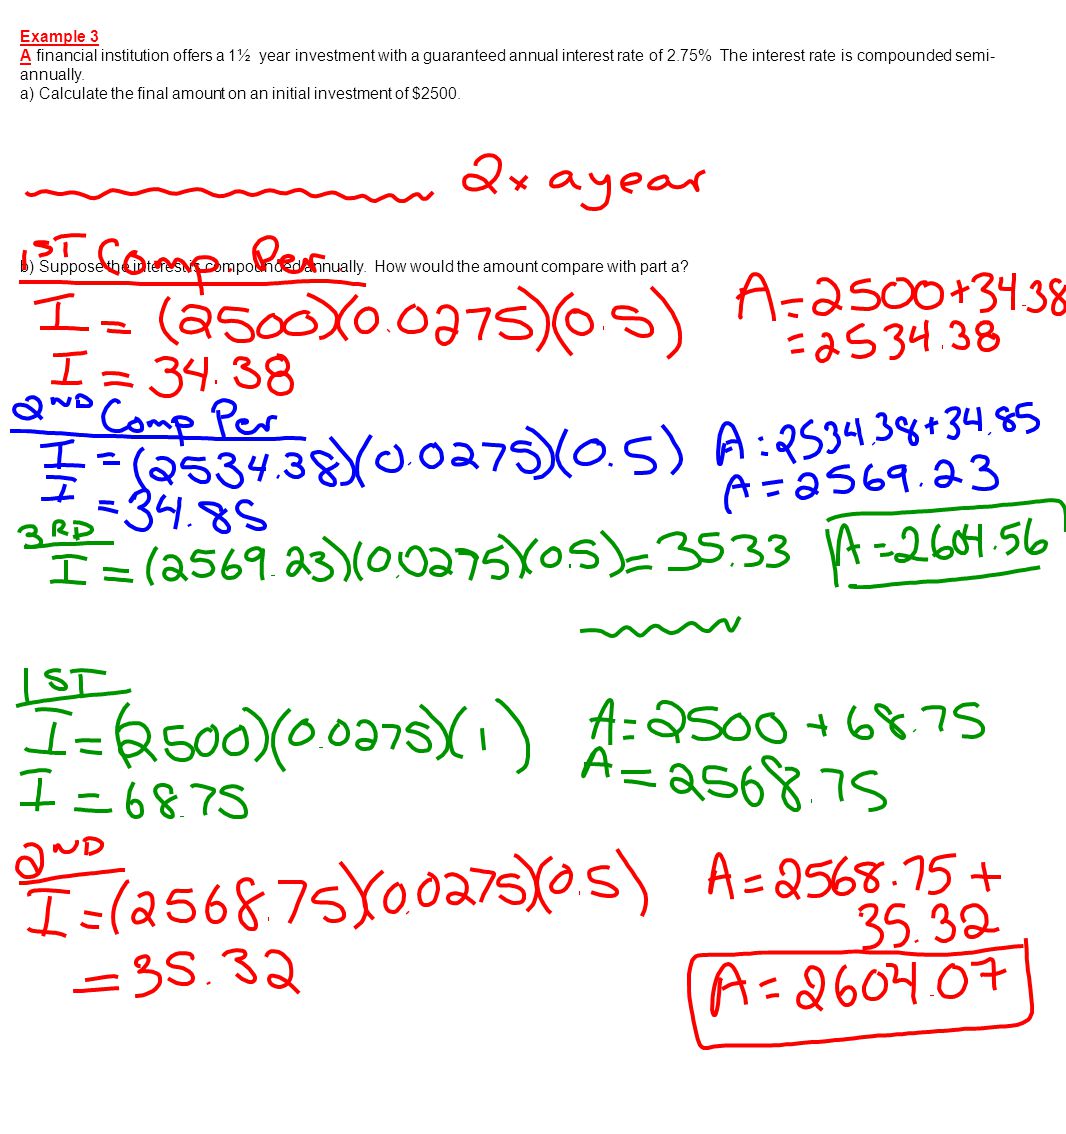 Example 3
A financial institution offers a 1½ year investment with a guaranteed annual interest rate of 2.75% The interest rate is compounded semi-
annually.
a) Calculate the final amount on an initial investment of $2500.
2x a year
1ST Comp. Per
b) Suppose the interest is compounded annually. How would the amount compare with part a?
I = (2500)(0.0275)(0.5) A=2500+34.38
I = 34.38 =2534.38
2ND Comp Per
I = (2534.38)(0.0275)(0.5) A=2534.38+34.85
I = 34.85 A=2569.23
3RD
I = (2569.23)(0.0275)(0.5)=35.33 A=2604.56
1ST
I=(2500)(0.0275)(1) A=2500 + 68.75
I = 68.75 A=2568.75
2ND
I=(2568.75)(0.0275)(0.5) A=2568.75 +
35.32
= 35.32 A=2604.07